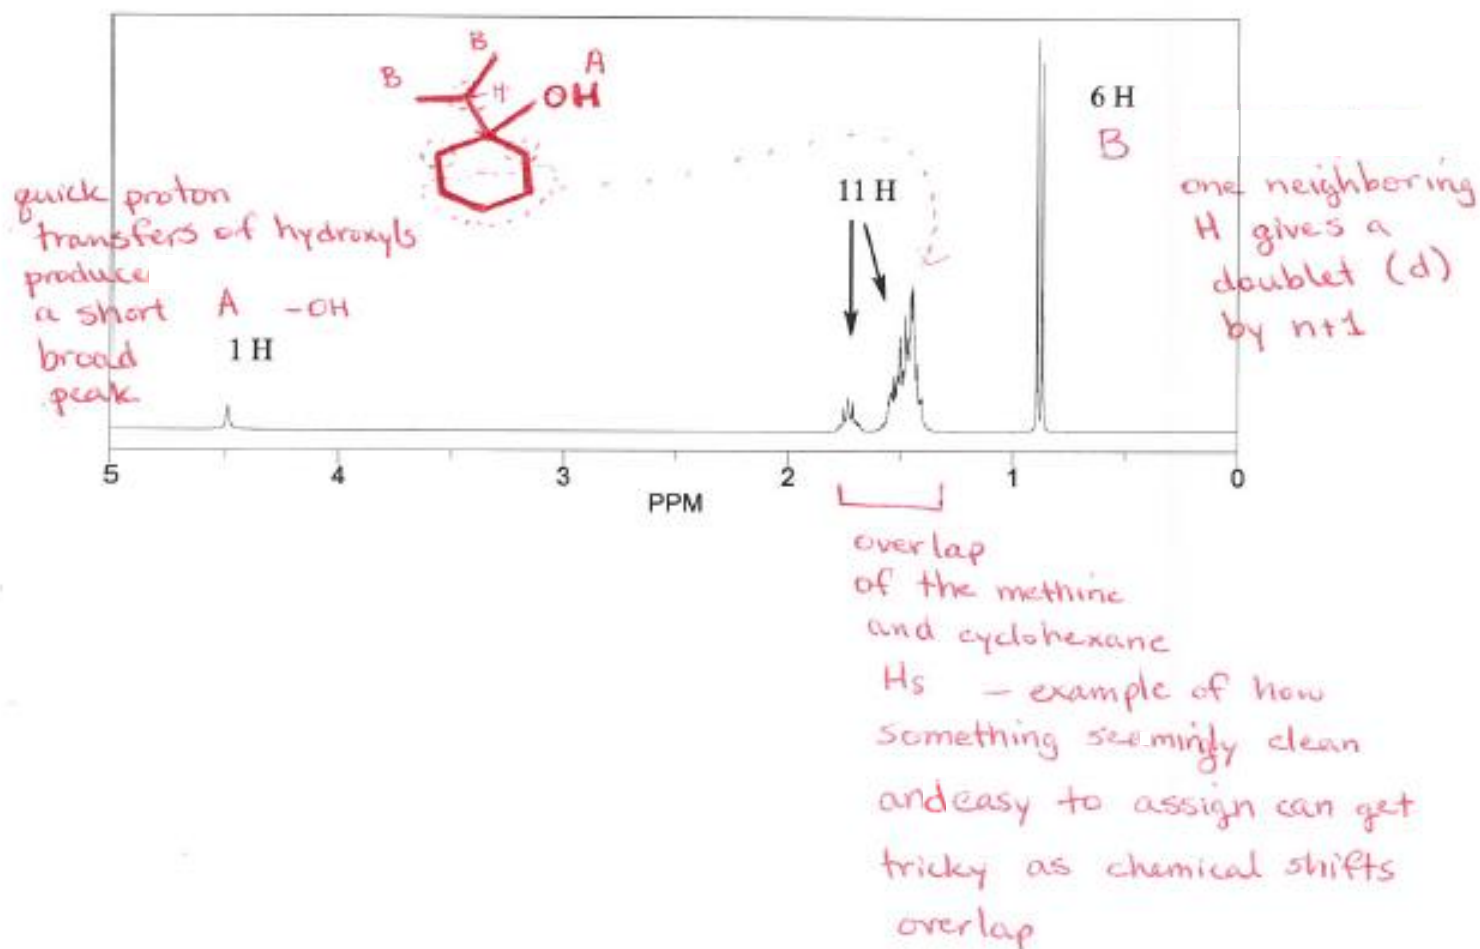 B
B
A
H
OH
6 H
B
11 H
quick proton
transfers of hydroxyls
produce
a short A -OH
broad
peak
1 H
one neighboring
H gives a
doublet (d)
by n+1
5 4 3 2 1 0
PPM
overlap
of the methine
and cyclohexane
Hs – example of how
something seemingly clean
and easy to assign can get
tricky as chemical shifts
overlap